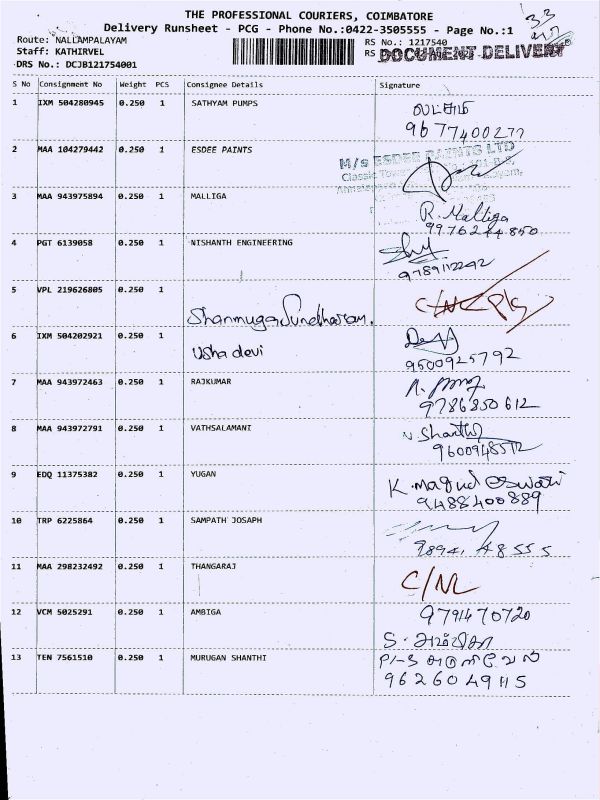 THE PROFESSIONAL COURIERS, COIMBATORE
33
Delivery Runsheet - PCG - Phone No.:0422-3505555 - Page No.:1
Route: NALLAMPALAYAM
RS No.: 1217540
Staff: KATHIRVEL
RS
DOCUMENT DELIVERY
DRS No.: DCJB121754001
S No Consignment No Weight PCS Consignee Details Signature
1 IXM 504280945 0.250 1 SATHYAM PUMPS லட்சுமி
9677400277
2 MAA 104279442 0.250 1 ESDEE PAINTS
M/s ESDEE PAINTS LTD
Classic
3 MAA 943975894 0.250 1 MALLIGA R. Malliga
9976244850
4 PGT 6139058 0.250 1 NISHANTH ENGINEERING
9789112242
5 VPL 219626805 0.250 1 Shanmuga Sundharam. C/N
6 IXM 504202921 0.250 1 Usha devi
9500925792
7 MAA 943972463 0.250 1 RAJKUMAR
9786850612
8 MAA 943972791 0.250 1 VATHSALAMANI V. Shanthi
9600948572
9 EDQ 11375382 0.250 1 YUGAN K. Magudeswari
9488400889
10 TRP 6225864 0.250 1 SAMPATH JOSAPH
11 MAA 298232492 0.250 1 THANGARAJ C/N
12 VCM 5025291 0.250 1 AMBIGA 9791470720
S. அம்பிகா
13 TEN 7561510 0.250 1 MURUGAN SHANTHI P/-S அருள்வேல்
9626049115